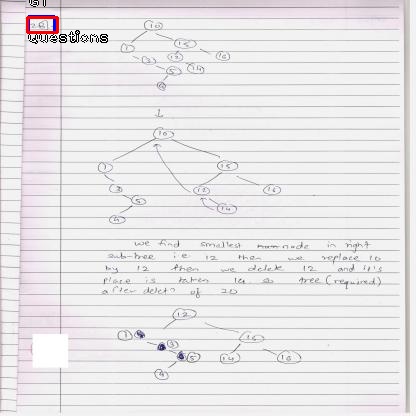 GT
Questions
10
1 15
3 12 16
5 14
4
10
1 15
3 12 16
5 14
4
we find smallest node in right
sub-tree i.e 12 then we replace 10
by 12 then we delete 12 and it's
place is taken 14 so tree (required)
after delet? of 10
12
1 15
3 14 16
5
4